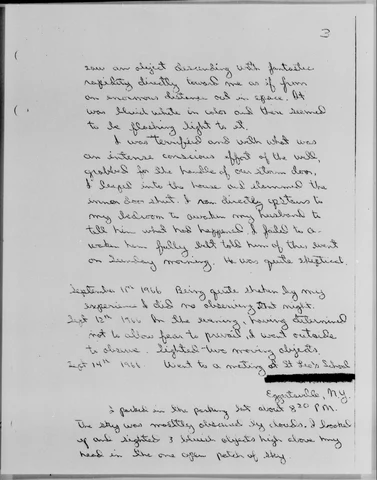 3
saw an object descending with fantastic
rapidity directly toward me as if from
an enormous distance out in space. It
was bluish white in color and there seemed
to be flashing light to it.
I was terrified and with what was
an intense conscious effort of the will,
grabbed for the handle of our storm door,
I leaped into the house and slammed the
inner door shut. I ran directly upstairs to
my bedroom to awaken my husband to
tell him what had happened. I faild to a-
waken him fully but told him of the event
on Sunday morning. He was quite skeptical.
September 11th 1966 Being quite shaken by my
experience I did no observing that night.
Sept 12th 1966 In the evening, having determined
not to allow fear to prevail, I went outside
to observe. Sighted two moving objects.
Sept 14th 1966 Went to a meeting at St Leo's School
Eggertsville, N.Y.
I parked in the parking lot about 8:30 P.M.
The sky was mostly obscured by clouds. I looked
up and sighted 3 bluish objects high above my
head in the one open patch of sky.